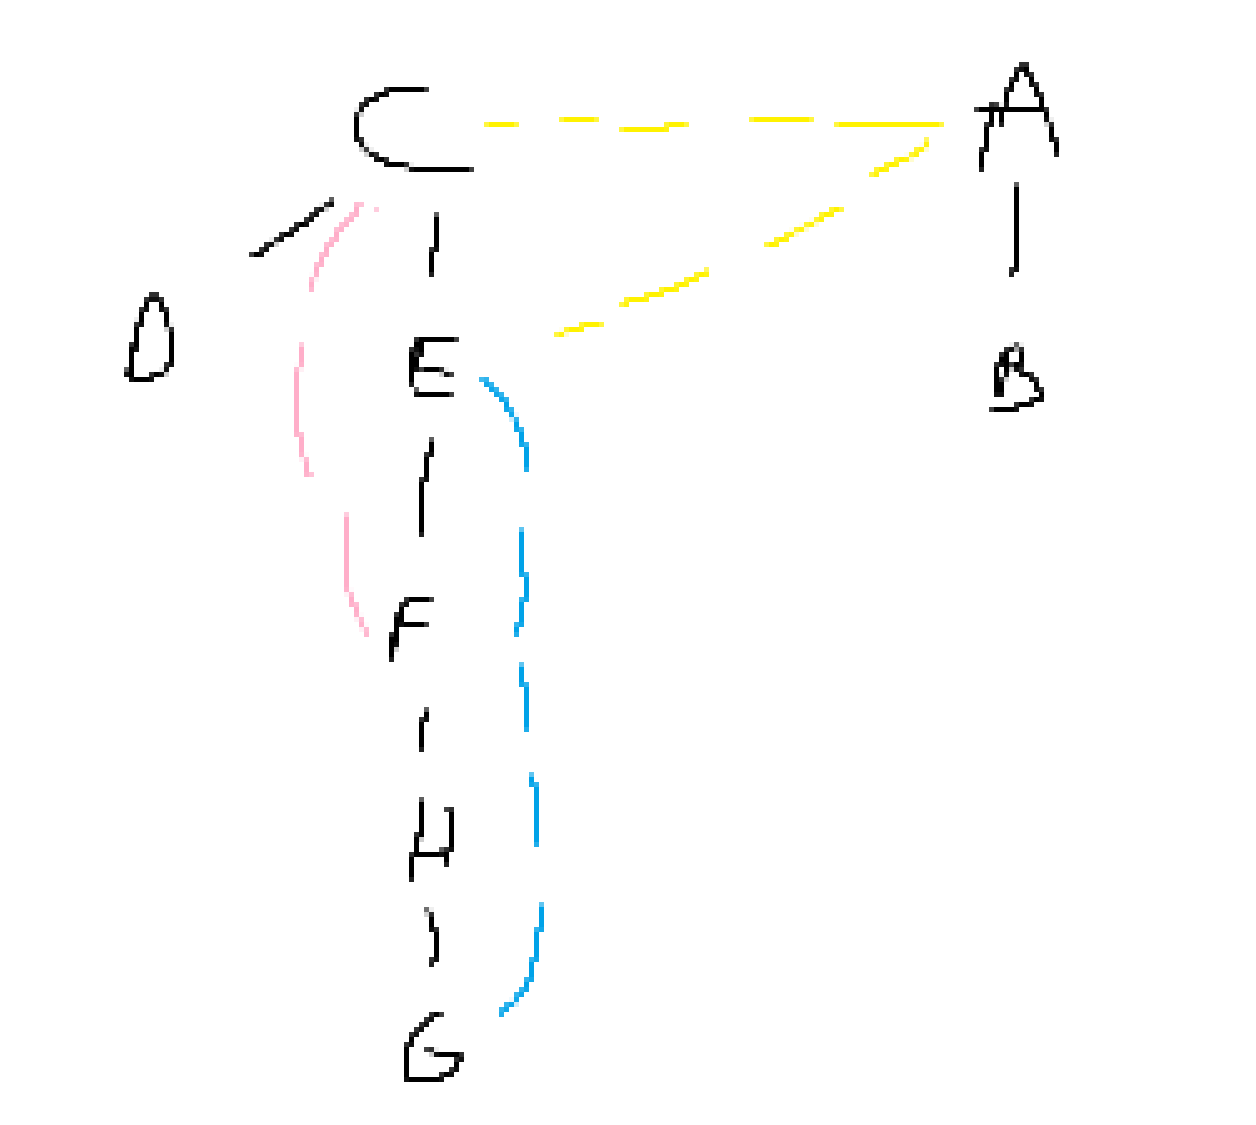 C A
D E B
F
H
G